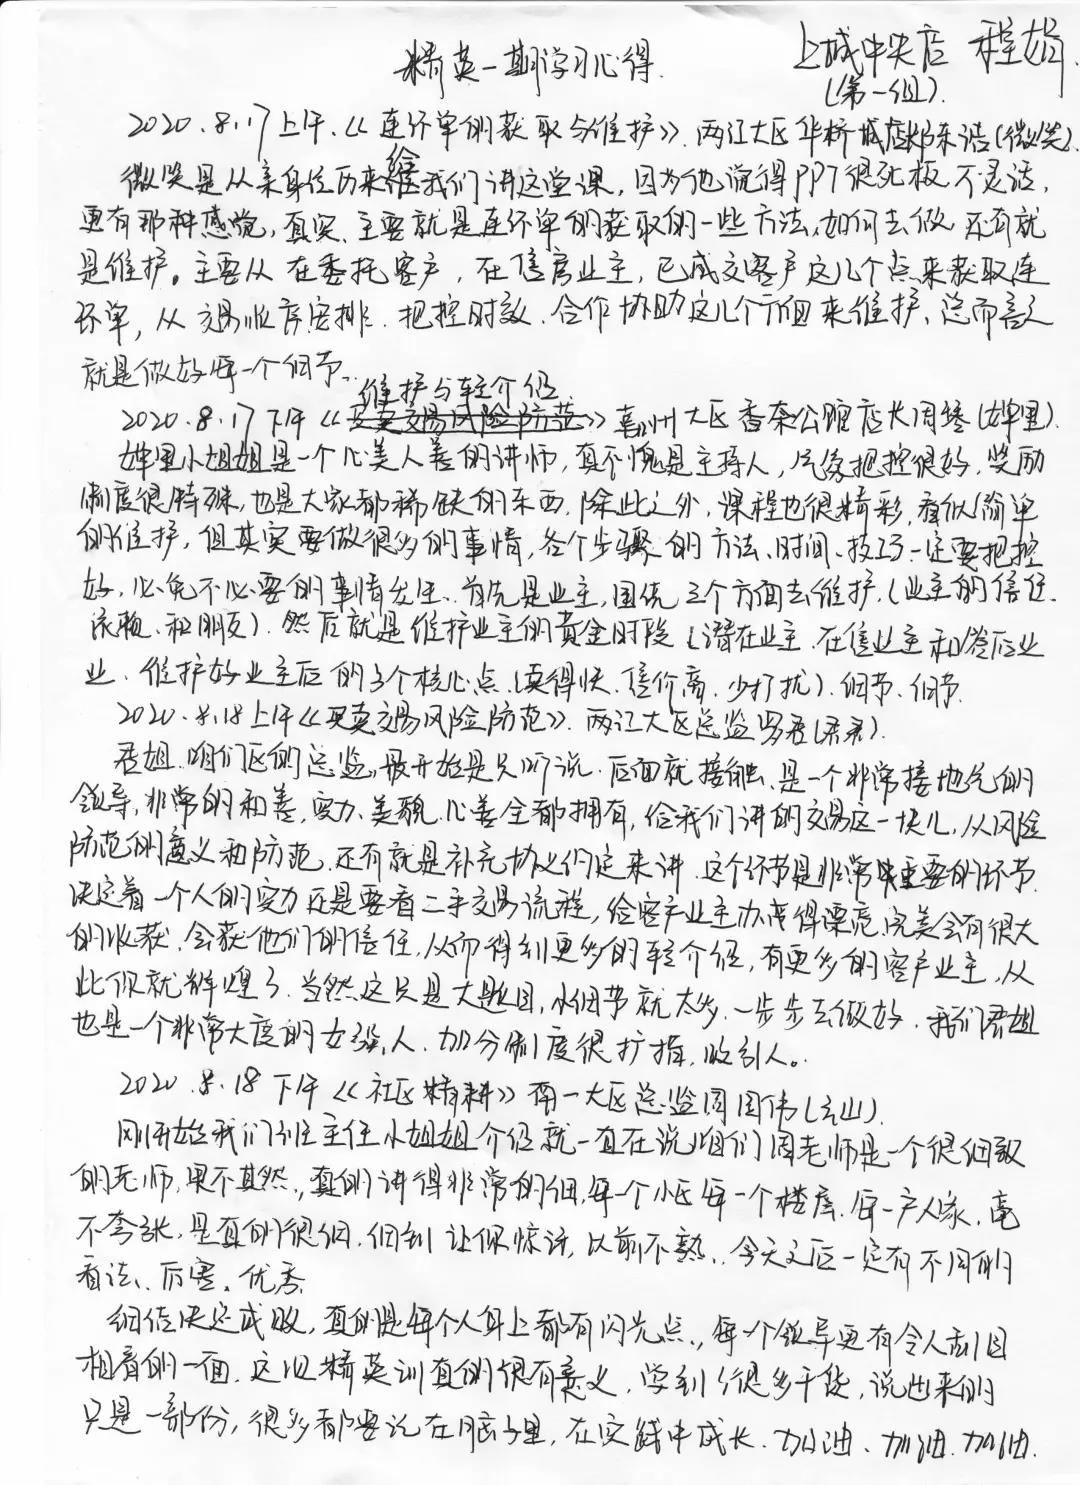 精英一期学习心得
上城中央店 程娟
(第一组).
2020.8.17上午.《连环单的获取与维护》.两江大区华桥城店 陈浩(微笑).
微笑是从亲身经历来给我们讲这堂课,因为他说得PPT很死板.不灵活,
更有那种感觉,真实、主要就是连环单的获取的一些方法,如何去做.还有就
是维护。主要从在委托客户,在售房业主,已成交客户这几个点来获取连
环单,从交易收房安排、把控时效、合作协助这几个方面来维护、总而言之
就是做好每一个细节.
维护与转介绍
2020.8.17下午《买卖交易风险防范》 大区香奈公馆店长周 (婶里).
婶里小姐姐是一个心美人善的讲师,真不愧是主持人,气氛把控很好,奖励
制度很特殊,也是大家都稀缺的东西.除此之外,课程也很精彩,看似简单
的维护,但其实要做很多的事情,各个步骤的方法、时间、技巧一定要把控
好,以免不必要的事情发生、首先是业主,围绕三个方面去维护.(业主的信任.
依赖、和朋友).然后就是维护业主的黄金时段(潜在业主.在售业主和签后业
业、维护好业主后的3个核心点(卖得快、售价高、少打扰).细节、细节.
2020.8.18上午《买卖交易风险防范》.两江大区总监 君(君君).
君姐、咱们区的总监,最开始是只听说.后面就接触、是一个非常接地气的
领导,非常的和善,实力、美貌、心善全都拥有,给我们讲的交易这一块儿,从风险
防范的意义和防范.还有就是补充协议约定来讲.这个环节是非常重要的环节.
决定着一个人的实力还是要看二手交易流程,给客户业主办事得漂亮,完美会有很大
的收获.会获他们的信任,从而得到更多的转介绍,有更多的客户业主,从
此你就辉煌了.当然这只是大题目,小细节就太多.一步步去做好.我们君姐
也是一个非常大度的女强人、加分制度很扩指,吸引人。
2020.8.18下午《社区精耕》南一大区总监周国伟(云山).
刚开始我们班主任小姐姐介绍就一直在说咱们周老师是一个很细致
的老师,果不其然,真的讲得非常的细,每一个小区每一个楼层.每一户人家,毫
不夸张,是真的很细.细到让你惊讶,以前不熟、今天之后一定有不同的
看法、厉害.优秀.
细结决定成败,真的是每个人身上都有闪光点,每一个领导更有令人刮目
相看的一面.这次精英训真的很有意义,学到了很多干货,说出来的
只是一部份,很多都要记在脑子里,在实践中成长.加油、加油.加油.